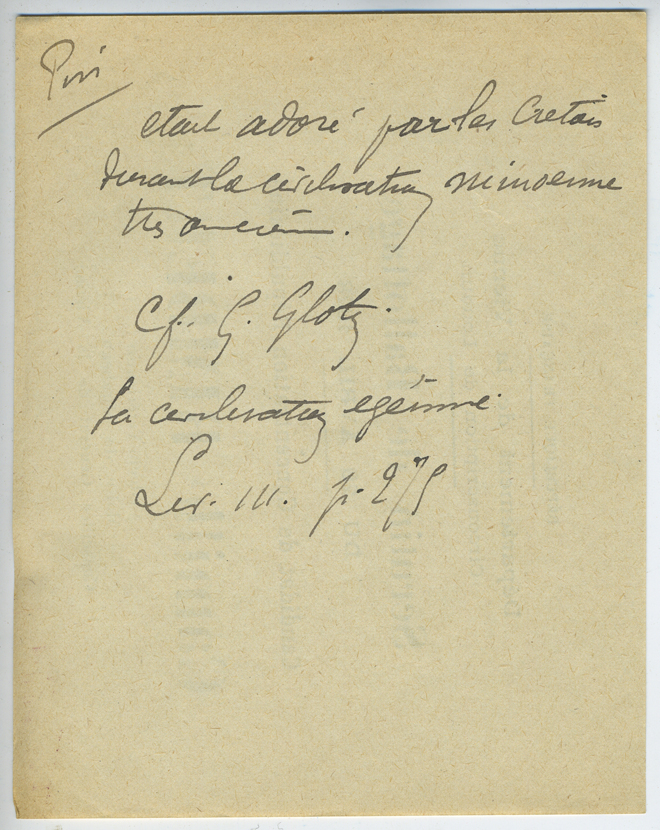 Pin
était adoré par les Crétois
durant la civilisation minoenne
très ancienne.
Cf. G. Glotz.
La civilisation égéenne.
Liv. III. p. 275